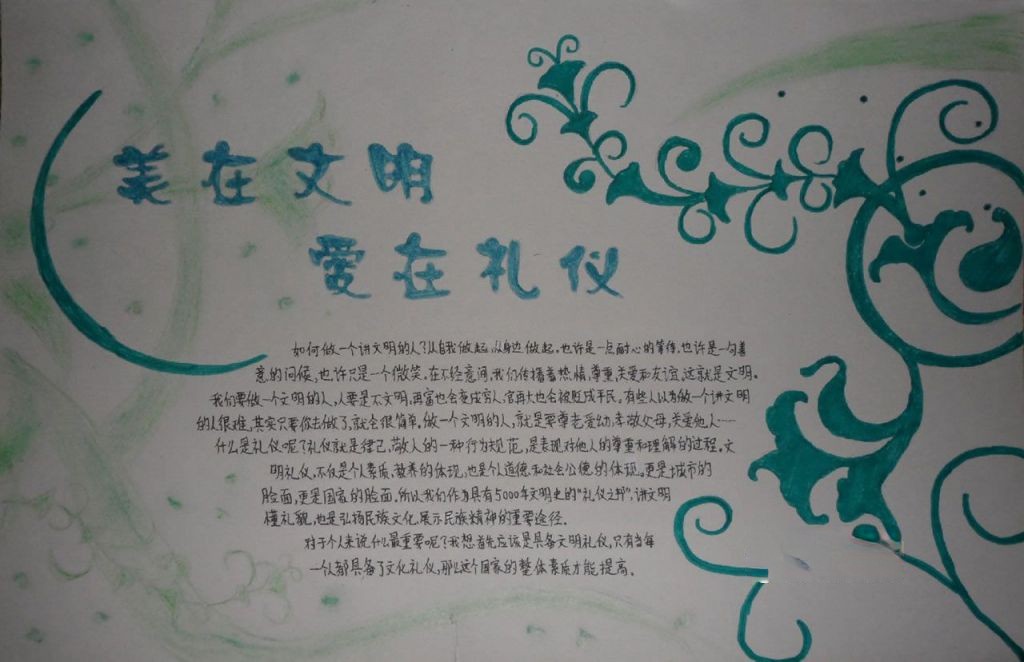 美在文明
爱在礼仪
如何做一个讲文明的人?从自我做起,从身边做起。也许是一点耐心的等待,也许是一句善
意的问候,也许只是一个微笑。在不经意间,我们传播着热情,尊重,关爱和友谊,这就是文明。
我们要做一个文明的人,人要是不文明,再富也会变成穷人,官再大也会被贬成平民。有些人认为做一个讲文明
的人很难,其实只要你去做了,就会很简单,做一个文明的人,就是要尊老爱幼,孝敬父母,关爱他人……
什么是礼仪呢?礼仪就是律己,敬人的一种行为规范,是表现对他人的尊重和理解的过程。文
明礼仪,不仅是个人素质,教养的体现,也是个人道德和社会公德的体现。更是城市的
脸面,更是国家的脸面,所以我们作为具有5000年文明史的"礼仪之邦",讲文明
懂礼貌,也是弘扬民族文化,展示民族精神的重要途径。
对于个人来说什么最重要呢?我想首先应该是具备文明礼仪,只有当每
一个人都具备了文化礼仪,那么这个国家的整体素质才能提高。